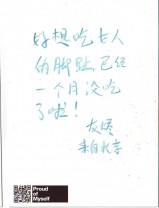 好想吃女人
的脚趾,已经
一个月没吃
了啦!
友贤
来自北京
Proud
of
Myself